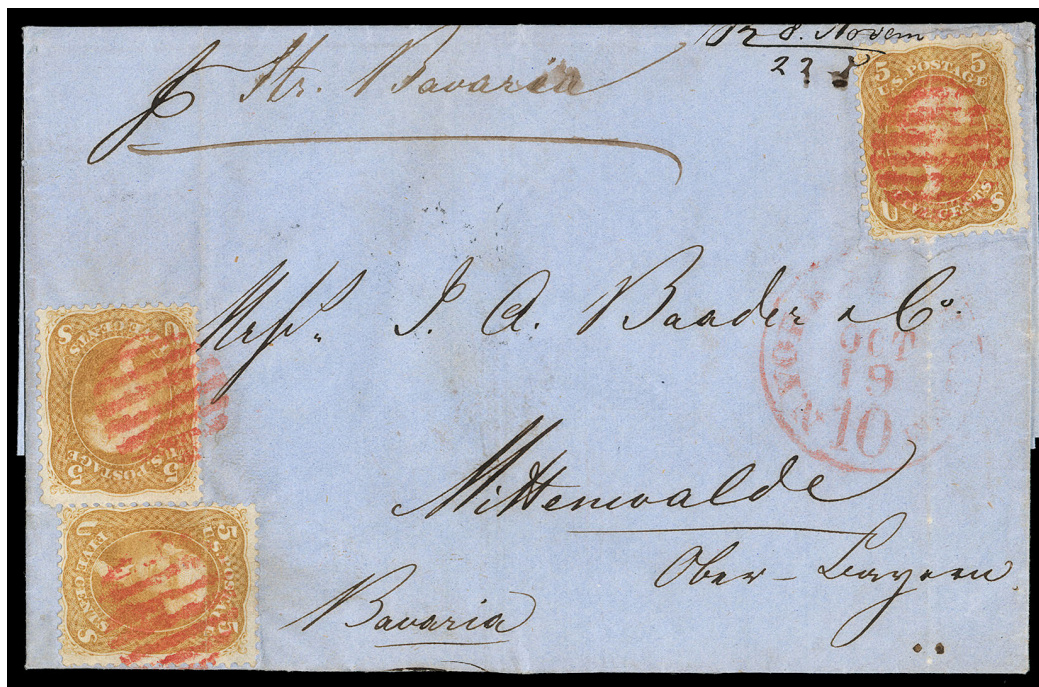 pr Str. Bavaria
8. Novem
22
5 5
U.S. POSTAGE
FIVE CENTS
U S
Messrs. J. A. Baader & Co.
N. YORK
OCT
19
10
Mittenwalde
Ober-Bayern
Bavaria
5 5
U.S. POSTAGE
FIVE CENTS
U S
5 5
U.S. POSTAGE
FIVE CENTS
U S